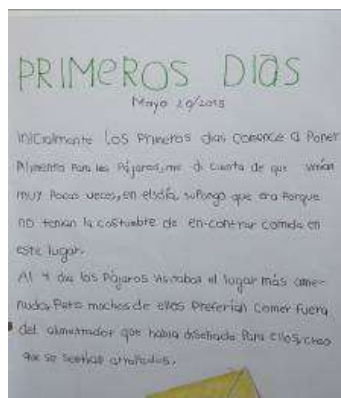 PRIMEROS DIAS
Mayo 20/2015
Inicialmente los primeros dias comence a Poner
Alimento Para los Pájaros, me di cuenta de que venian
muy Pocas veces, en el dia, supongo que era Porque
no tenian la costumbre de en-contrar comida en
este lugar.
Al 4 dia los Pájaros visitaban el lugar más ame-
nudo, Pero muchos de ellos Preferian comer fuera
del alimentador que habia diseñado Para ellos, creo
que se sentian atrallados.